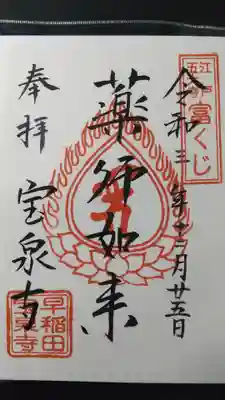 江戸
五
富くじ
令和三年十二月廿五日
薬師如来
奉拝
宝泉寺
早稲田
宝泉寺